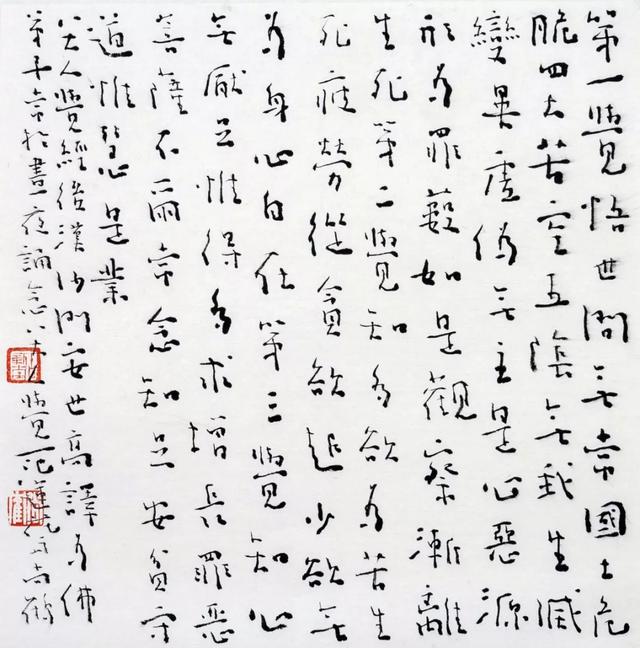 第一覺悟世間無常國土危
脆四大苦空五陰無我生滅
變異虛偽無主是心惡源
形為罪藪如是觀察漸離
生死第二覺知多欲為苦生
死疲勞從貪欲起少欲無
為身心自在第三覺知心
無厭足惟得多求增長罪惡
菩薩不爾常念知足安貧守
道惟慧心是業
八大人覺經後漢沙門安世高譯為佛
弟子常於晝夜誦念八大人覺